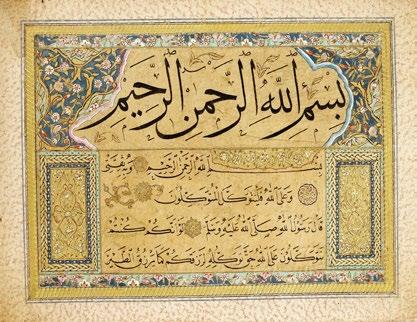 بِسْمِ اللهِ الرَّحْمٰنِ الرَّحِيْمِ
بِسْمِ اللهِ الرَّحْمٰنِ الرَّحِيْمِ وَبِهِ ثِقَتِي
وَعَلَى اللهِ فَلْيَتَوَكَّلِ الْمُتَوَكِّلُونَ
قَالَ رَسُولُ اللهِ صَلَّى اللهُ عَلَيْهِ وَسَلَّمَ لَوْ أَنَّكُمْ كُنْتُمْ
تَوَكَّلُونَ عَلَى اللهِ حَقَّ تَوَكُّلِهِ لَرَزَقَكُمْ كَمَا يَرْزُقُ الطَّيْرَ